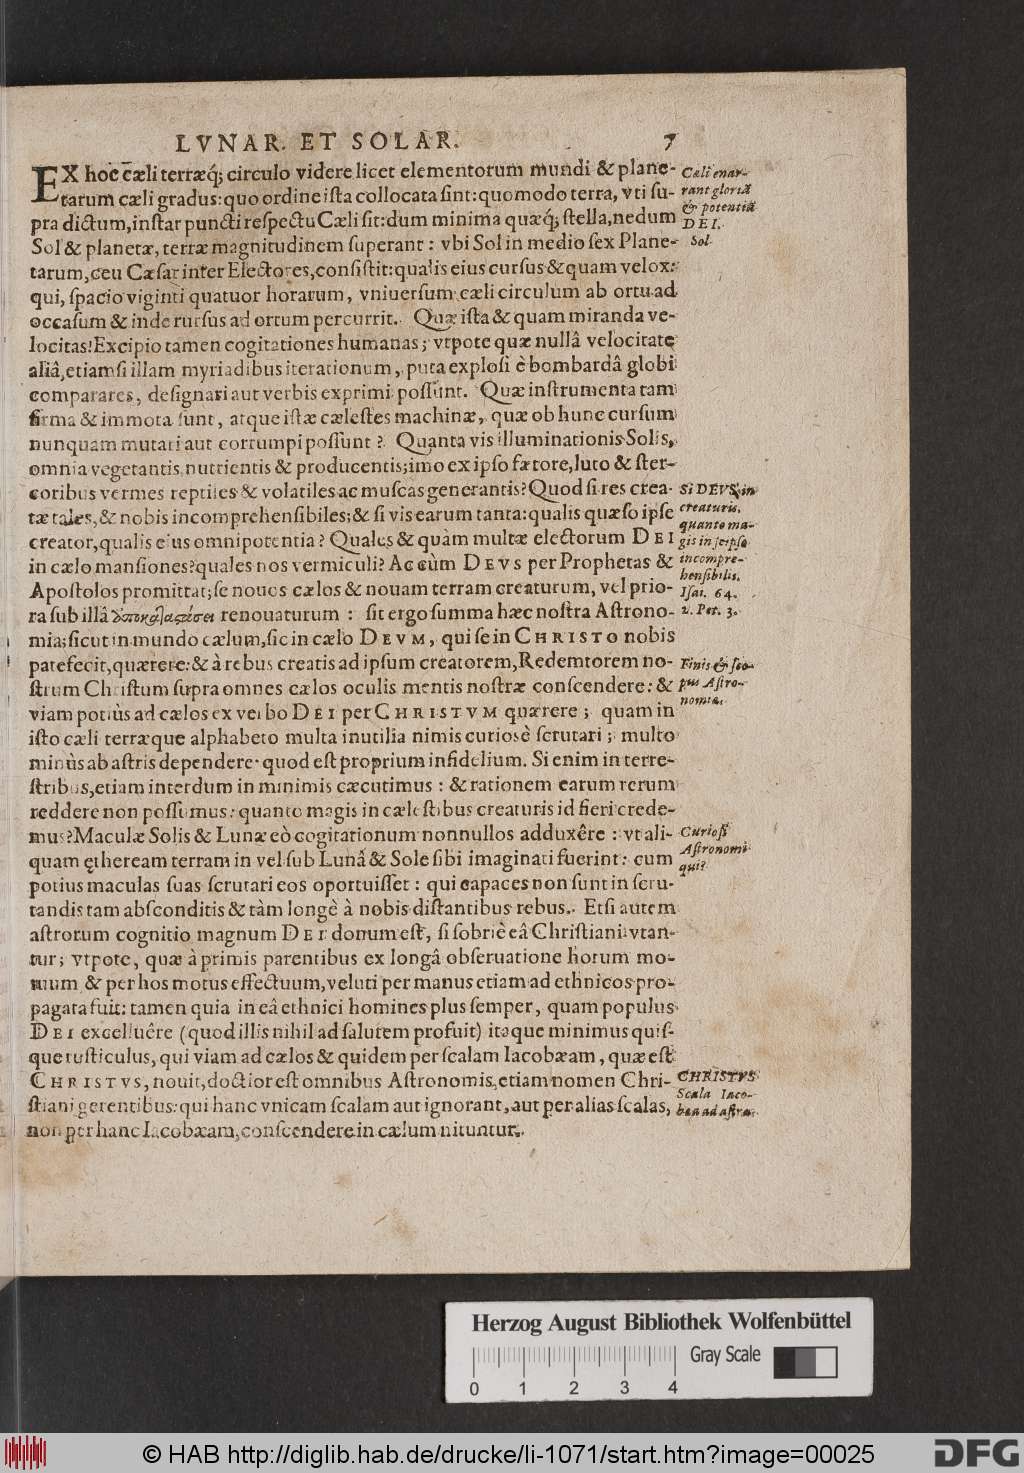 LVNAR. ET SOLAR. 7
EX hoc cæli terræq́; circulo videre licet elementorum mundi & plane-
tarum cæli gradus: quo ordine ista collocata sint: quomodo terra, vti su-
pra dictum, instar puncti respectu Cæli sit: dum minima quæq́; stella, nedum
Sol & planetæ, terræ magnitudinem superant: vbi Sol in medio sex Plane-
tarum, ceu Cæsar inter Electores, consistit: qualis eius cursus & quam velox:
qui, spacio viginti quatuor horarum, vniuersum cæli circulum ab ortu ad
occasum & inde rursus ad ortum percurrit. Quæ ista & quam miranda ve-
locitas! Excipio tamen cogitationes humanas; vtpote quæ nullâ velocitate
aliâ, etiamsi illam myriadibus iterationum, puta explosi è bombardâ globi
comparares, designari aut verbis exprimi possunt. Quæ instrumenta tam
firma & immota sunt, atque istæ cælestes machinæ, quæ ob hunc cursum
nunquam mutari aut corrumpi possunt? Quanta vis illuminationis Solis,
omnia vegetantis, nutrientis & producentis; imo ex ipso fœtore, luto & ster-
coribus vermes reptiles & volatiles ac muscas generantis? Quod si res crea-
tæ tales, & nobis incomprehensibiles; & si vis earum tanta: qualis quæso ipse
creator, qualis eius omnipotentia? Quales & quàm multæ electorum DEI
in cælo mansiones? quales nos vermiculi? Ac cùm DEVS per Prophetas &
Apostolos promittat; se nouos cælos & nouam terram creaturum, vel prio-
ra sub illâ renouaturum: sit ergo summa hæc nostra Astrono-
mia; sicut in mundo cælum, sic in cælo DEVM, qui se in CHRISTO nobis
patefecit, quærere: & à rebus creatis ad ipsum creatorem, Redemtorem no-
strum Christum supra omnes cælos oculis mentis nostræ conscendere: &
viam potiùs ad cælos ex verbo DEI per CHRISTVM quærere; quam in
isto cæli terræque alphabeto multa inutilia nimis curiosè scrutari; multo
minùs ab astris dependere: quod est proprium infidelium. Si enim in terre-
stribus, etiam interdum in minimis cæcutimus: & rationem earum rerum
reddere non possumus: quanto magis in cælestibus creaturis id fieri crede-
mus? Maculæ Solis & Lunæ eò cogitationum nonnullos adduxêre: vt ali-
quam ętheream terram in vel sub Lunâ & Sole sibi imaginati fuerint: cum
potius maculas suas scrutari eos oportuisset: qui capaces non sunt in scru-
tandis tam absconditis & tàm longè à nobis distantibus rebus. Etsi autem
astrorum cognitio magnum DEI donum est, si sobriè eâ Christiani vtan-
tur; vtpote, quæ à primis parentibus ex longâ obseruatione horum mo-
tuum & per hos motus effectuum, veluti per manus etiam ad ethnicos pro-
pagata fuit: tamen quia in eâ ethnici homines plus semper, quam populus
DEI excelluêre (quod illis nihil ad salutem profuit) itaque minimus quis-
que rusticulus, qui viam ad cælos & quidem per scalam Iacobæam, quæ est
CHRISTVS, nouit, doctior est omnibus Astronomis, etiam nomen Chri-
stiani gerentibus: qui hanc vnicam scalam aut ignorant, aut per alias scalas,
non per hanc Iacobæam, conscendere in cælum nituntur.
Cæli enar-
rant gloriā
& potentiā
DEI.
Sol.
Si DEVS in
creaturis,
quanto ma-
gis in seipso
incompre-
hensibilis.
Isai. 64.
2. Pet. 3.
Finis & sco-
pus Astro-
nomiæ.
Curiosi
Astronomi
qui?
CHRISTVS
Scala Iaco-
bæa ad astra.
Herzog August Bibliothek Wolfenbüttel
Gray Scale
0 1 2 3 4
© HAB http://diglib.hab.de/drucke/li-1071/start.htm?image=00025
DFG